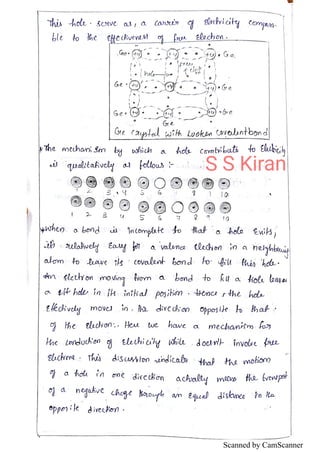 This hole serve as, a carrier of Electricity compara-
ble to the effectiveness of free Electron.
Ge +4 +4 +4 Ge
hole free elect
Ge +4 +4 +4 Ge
Ge +4 +4 +4 Ge
Ge Ge
Ge crystal with broken covalent bond
The mechanism by which a hole contribute to Elekticity
is qualitatively as follows :-
S S Kiran
1 2 3 4 5 6 7 8 9 10
1 2 3 4 5 6 7 8 9 10
When a bond is incomplete so that a hole Exits,
its relatively Easy for a valence Electron in a neighbouring
atom to leave its covalent bond to fill this hole.
An Electron moving from a bond to fill a hole leaves
a hole in its initial position. Hence, the hole
Effectively moves in the direction opposite to that
of the Electron. Here we have a mechanism for
the conduction of Electricity which doesn't involve free
Electrons. This discussion indicate that the motion
of a hole in one direction actually means the transport
of a negative charge through an Equal distance in the
opposite direction.
Scanned by CamScanner